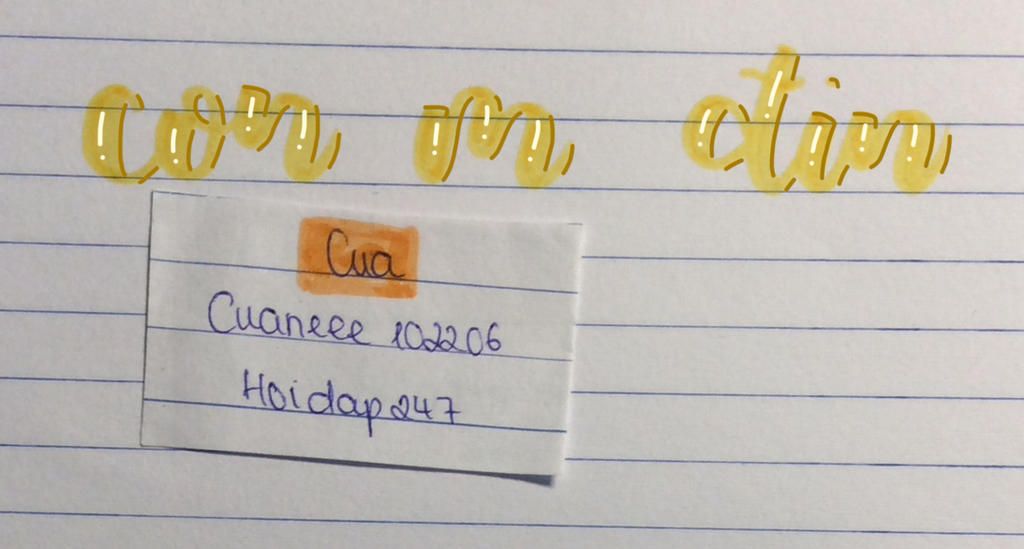 con m
Cua
Cuaneee 102206
Hoidap247